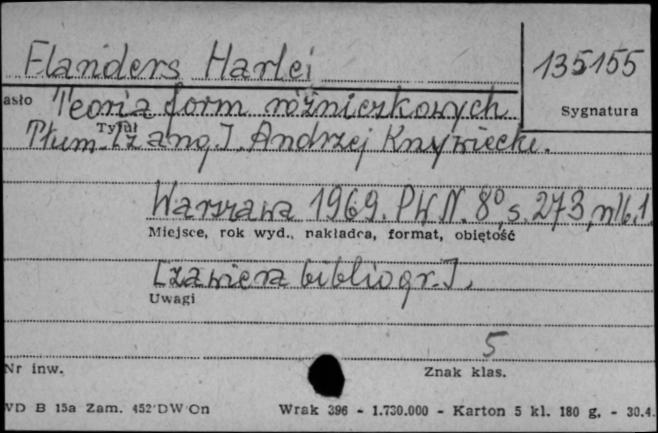 Flanders Harlei
135155
asło
Teoria form różniczkowych
Sygnatura
Tytuł
Tłum. [z ang.]. Andrzej Knywiecki.
Warszawa 1969. PWN. 8°, s. 273, nlb, 1.
Miejsce, rok wyd., nakładca, format, objętość
[zawiera bibliogr.].
Uwagi
5
Nr inw.
Znak klas.
WD B 15a Zam. 452 DW On Wrak 396 - 1.730.000 - Karton 5 kl. 180 g. - 30.4.